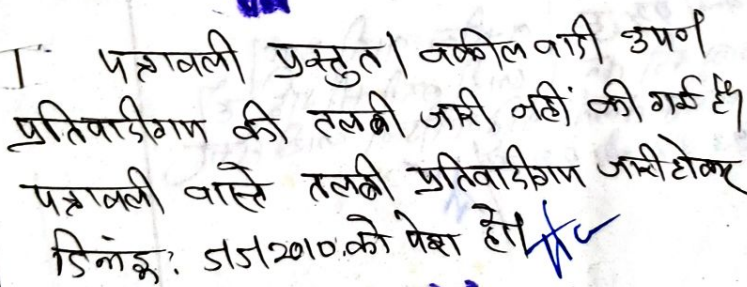 पत्रावली प्रस्तुत। वकील वादी उप०।
प्रतिवादीगण की तलबी जारी नहीं की गई है।
पत्रावली वास्ते तलबी प्रतिवादीगण जारी होकर
दिनांक: 5/5/2010 को पेश हो।